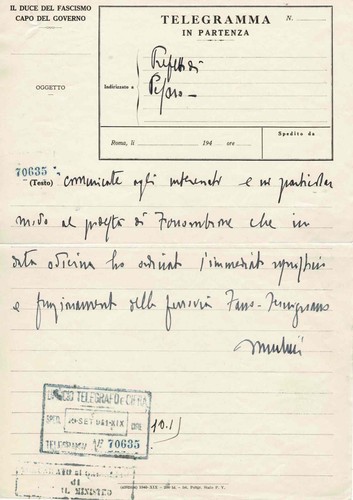 IL DUCE DEL FASCISMO
CAPO DEL GOVERNO
OGGETTO
TELEGRAMMA
IN PARTENZA
N.
Indirizzato a
Prefetto di
Pesaro
Spedito da
Roma, li 194 ore
70635
(Testo) Comunicate agli interessati e in particolar
modo al podestà di Fossombrone che in
data odierna ho ordinato l'immediato ripristino
e funzionamento della ferrovia Fano-Fermignano
Mussolini
UFFICIO TELEGRAFO E CIFRA
SPED. SET 1941-XIX ORE
TELEGRAMMA N° 70635
di
IL MINISTRO